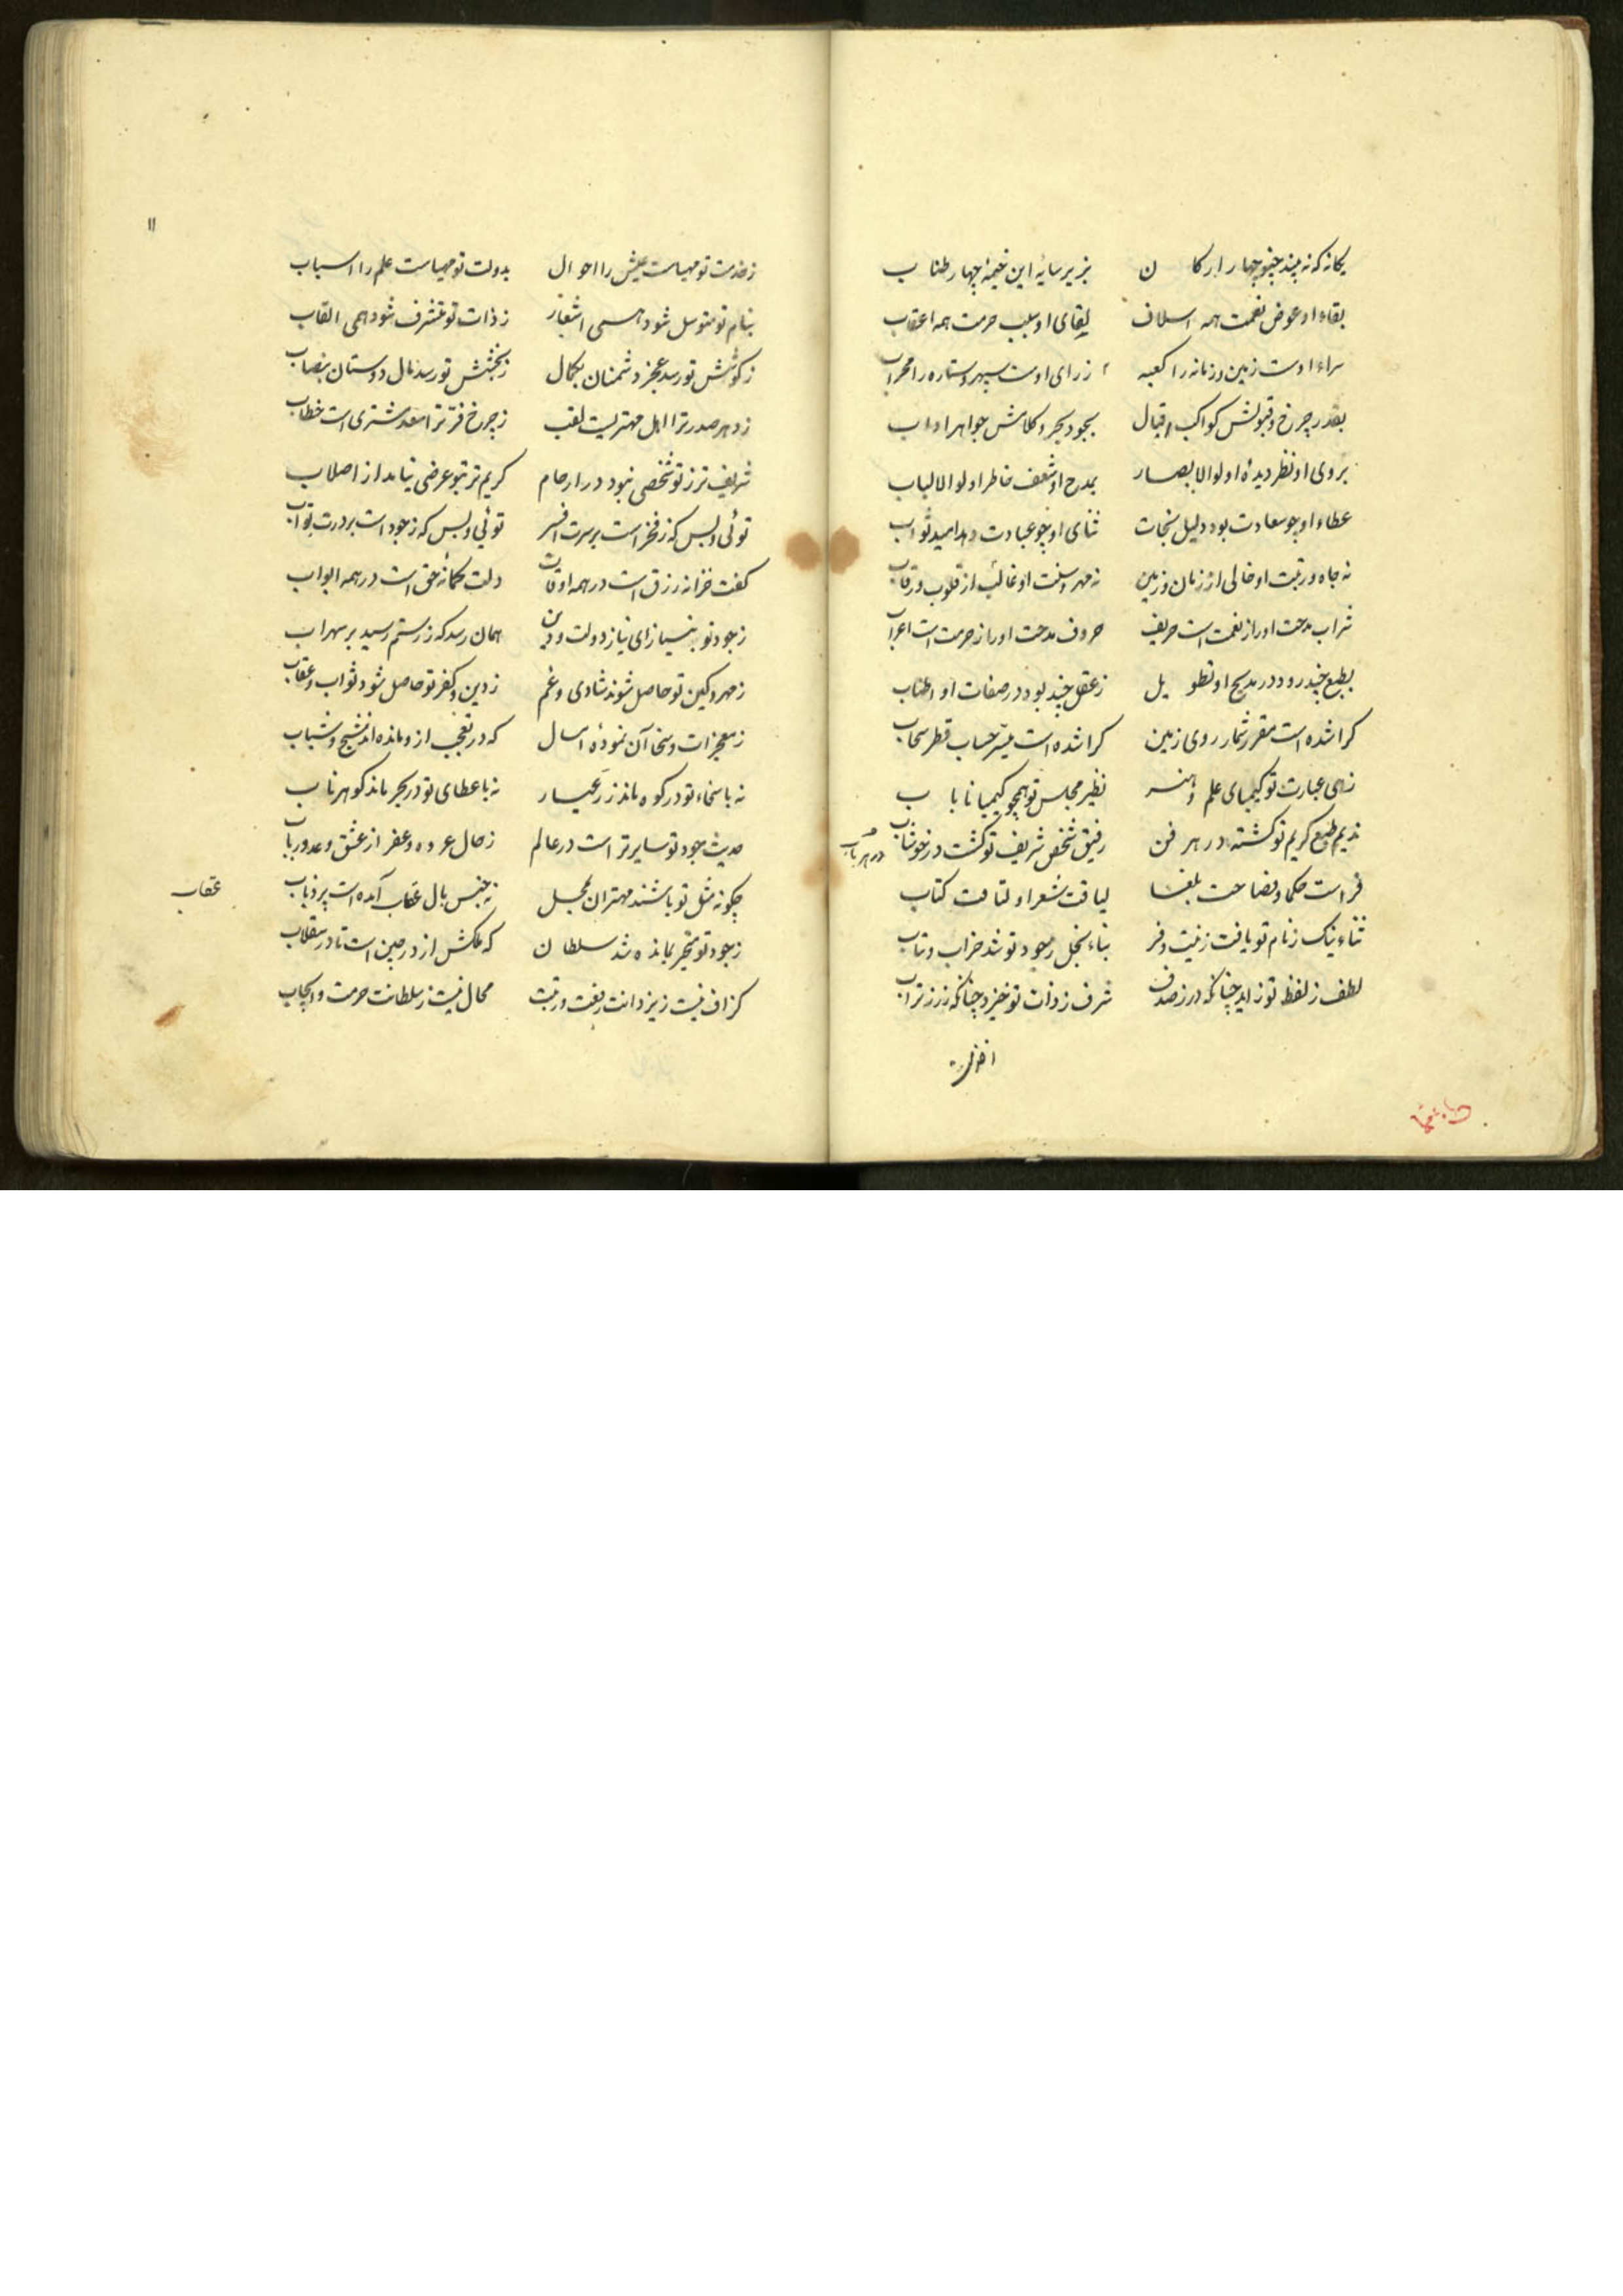 یکانه که نه بیند چنو چهار ارکان بزیر سایه این خیمه چهار طناب
بقاء او عوض نعمت همه اسلاف لقای او سبب حرمت همه اعقاب
سراء اوست زمین و زمانه را کعبه ز رای اوست سپهر و ستاره را محراب
بقدر چرخ و قبولش کواکب اقبال بجود بحر و کلامش جواهر اداب
بروی او نظر دیده اولوالابصار بمدح او شعف خاطر اولوالالباب
عطاء او چو سعادت بود دلیل نجات ثنای او چو عبادت دهد امید ثواب
نه جاه و رتبت او خالی از زمان و زمین نه مهر و منت او غائب از قلوب و رقاب
شراب مدحت او را از نعمت است حریف حروف مدحت او را ز حرمت است اعراب
بطبع چند رود در مدیح او تطویل ز عقل چند بود در صفات او اطناب
کرا شده است مقرر شمار روی زمین کرا شده است میسر حساب قطر سحاب
زهی عبارت تو کیمیای علم و هنر نظیر مجلس تو همچو کیمیا نایاب
ندیم طبع کریم تو کشته در هر فن رفیق شخص شریف تو کشت در خوشاب
در هر باب
فراست حکما و فصاحت بلغا لیاقت شعراء و لتاقت کتاب
ثناء نیک ز نام تو یافت زینت و فر بناء بخل ز جود تو شد خراب و تباب
لطف ز لفظ تو زاید چنانکه در ز صدف شرف ز ذات تو خیزد چنانکه زر ز تراب
۱۱
ز خدمت تو مهیاست عیش را احوال بدولت تو مهیاست علم را اسباب
بنام تو متوسل شود همی اشعار ز ذات تو متشرف شود همی القاب
ز کوشش تو رسد عجز دشمنان بکمال ز بخشش تو رسد مال دوستان بنصاب
ز دهر صدر ترا اهل مهتریست لقب ز چرخ فر ترا سعد مشتری است خطاب
شریف تر ز تو شخصی نبود در ارحام کریم تر ز تو عرضی نیامد از اصلاب
توئی و بس که ز فخر است بر سرت افسر توئی و بس که ز جود است بر درت بواب
کفت خزانه رزق است در همه اوقات دلت کمانه حق است در همه ابواب
ز جود تو به نیاز ای نیاز دولت و دین همان رسد که ز رستم رسید بر سهراب
ز مهر و کین تو حاصل شوند شادی و غم ز دین و کفر تو حاصل شود ثواب و عقاب
ز معجزات و سخا آن نموده امسال که در تعجب از و مانده اند شیخ و شباب
نه با سخاء تو در کوه ماند زر عیار نه با عطای تو در بحر ماند کوهر ناب
حدیث جود تو سایر تر است در عالم ز حال عروه و عفرا ز عشق و عد و رباب
چکونه مثل تو باشند مهتران بمحل نه جنس بال عقاب آمده است پر ذباب
عقاب
ز جود تو متحیر بمانده شد سلطان که ملکش از در چین است تا در سقلاب
کزاف نیست ز یزدانت رفعت و رتبت محال نیست ز سلطانت حرمت و ایجاب